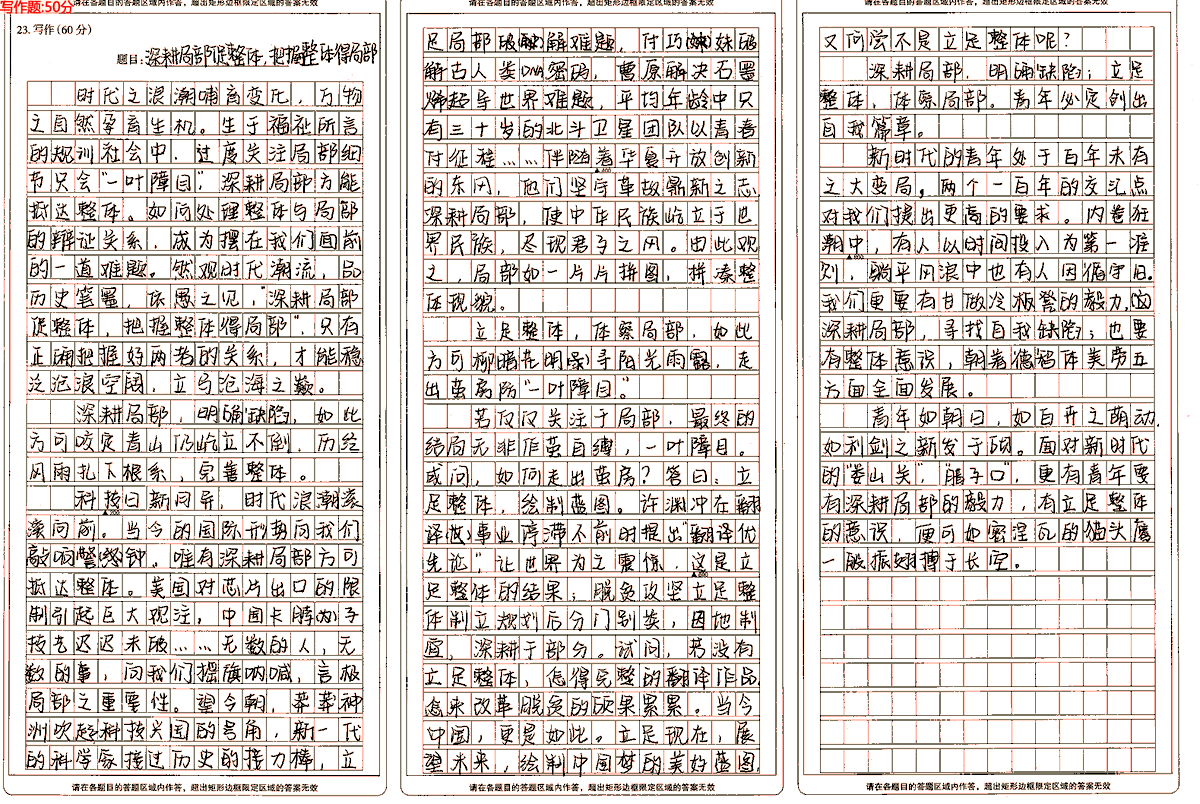 写作题:50分
请在各题目的答题区域内作答，超出矩形边框限定区域的答案无效
23. 写作(60分)
题目:深耕局部促整体,把握整体得局部
时代之浪潮哺育变化，万物
之自然孕育生机。生于福祉所言
的规训社会中，过度关注局部细
节只会"一叶障目"，深耕局部方能
抵达整体。如何处理整体与局部
的辩证关系，成为摆在我们面前
的一道难题。然观时代潮流，品
历史笔墨，依愚之见，"深耕局部
促整体，把握整体得局部"，只有
正确把握好两者的关系，才能稳
泛沧浪空阔，立马沧海之巅。
深耕局部，明确缺陷，如此
方可咬定青山仍屹立不倒，历经
风雨扎下根系，完善整体。
科技日新月异，时代浪潮滚
滚向前。当今的国际形势向我们
敲响警钟。唯有深耕局部方可
抵达整体。美国对芯片出口的限
制引起巨大观注，中国卡脖子
技术迟迟未破……无数的人，无
数的事，向我们摇旗呐喊，言极
局部之重要性。望今朝，莽莽神
洲吹起科技兴国的号角，新一代
的科学家接过历史的接力棒，立
请在各题目的答题区域内作答，超出矩形边框限定区域的答案无效
请在各题目的答题区域内作答，超出矩形边框限定区域的答案无效
足局部破解难题，付巧妹破
解古人类DNA密码，曹原解决石墨
烯超导世界难题，平均年龄中只
有三十岁的北斗卫星团队以青春
付征程……伴随着华夏开放创新
的东风，他们坚守革故鼎新之志，
深耕局部，使中华民族屹立于世
界民族，尽现君子之风。由此观
之，局部如一片片拼图，拼凑整
体现貌。
立足整体，体察局部，如此
方可柳暗花明寻阳光雨露，走
出茧房防"一叶障目"。
若仅仅关注于局部，最终的
结局无非作茧自缚，一叶障目。
或问，如何走出茧房？答曰：立
足整体，绘制蓝图。许渊冲在翻
译事业停滞不前时提出"翻译优
先论"，让世界为之震惊，这是立
足整体的结果；脱贫攻坚立足整
体制立规划后分门别类，因地制
宜，深耕于部分。试问，若没有
立足整体，怎得完整的翻译作品，
怎来改革脱贫的硕果累累。当今
中国，更是如此。立足现在，展
望未来，绘制中国梦的美好蓝图，
请在各题目的答题区域内作答，超出矩形边框限定区域的答案无效
请在各题目的答题区域内作答，超出矩形边框限定区域的答案无效
又何尝不是立足整体呢？
深耕局部，明确缺陷；立足
整体，体察局部。青年必定创出
自我篇章。
新时代的青年处于百年未有
之大变局，两个一百年的交汇点
对我们提出更高的要求。内卷狂
潮中，有人以时间投入为第一准
则，躺平风浪中也有人因循守旧。
我们更要有甘做冷板凳的毅力，
深耕局部，寻找自我缺陷；也要
有整体意识，朝着德智体美劳五
方面全面发展。
青年如朝日，如百卉之萌动，
如利剑之新发于硎。面对新时代
的"娄山关"，"腊子口"，更有青年要
有深耕局部的毅力，有立足整体
的意识，便可如密涅瓦的猫头鹰
一般振翅搏于长空。
请在各题目的答题区域内作答，超出矩形边框限定区域的答案无效